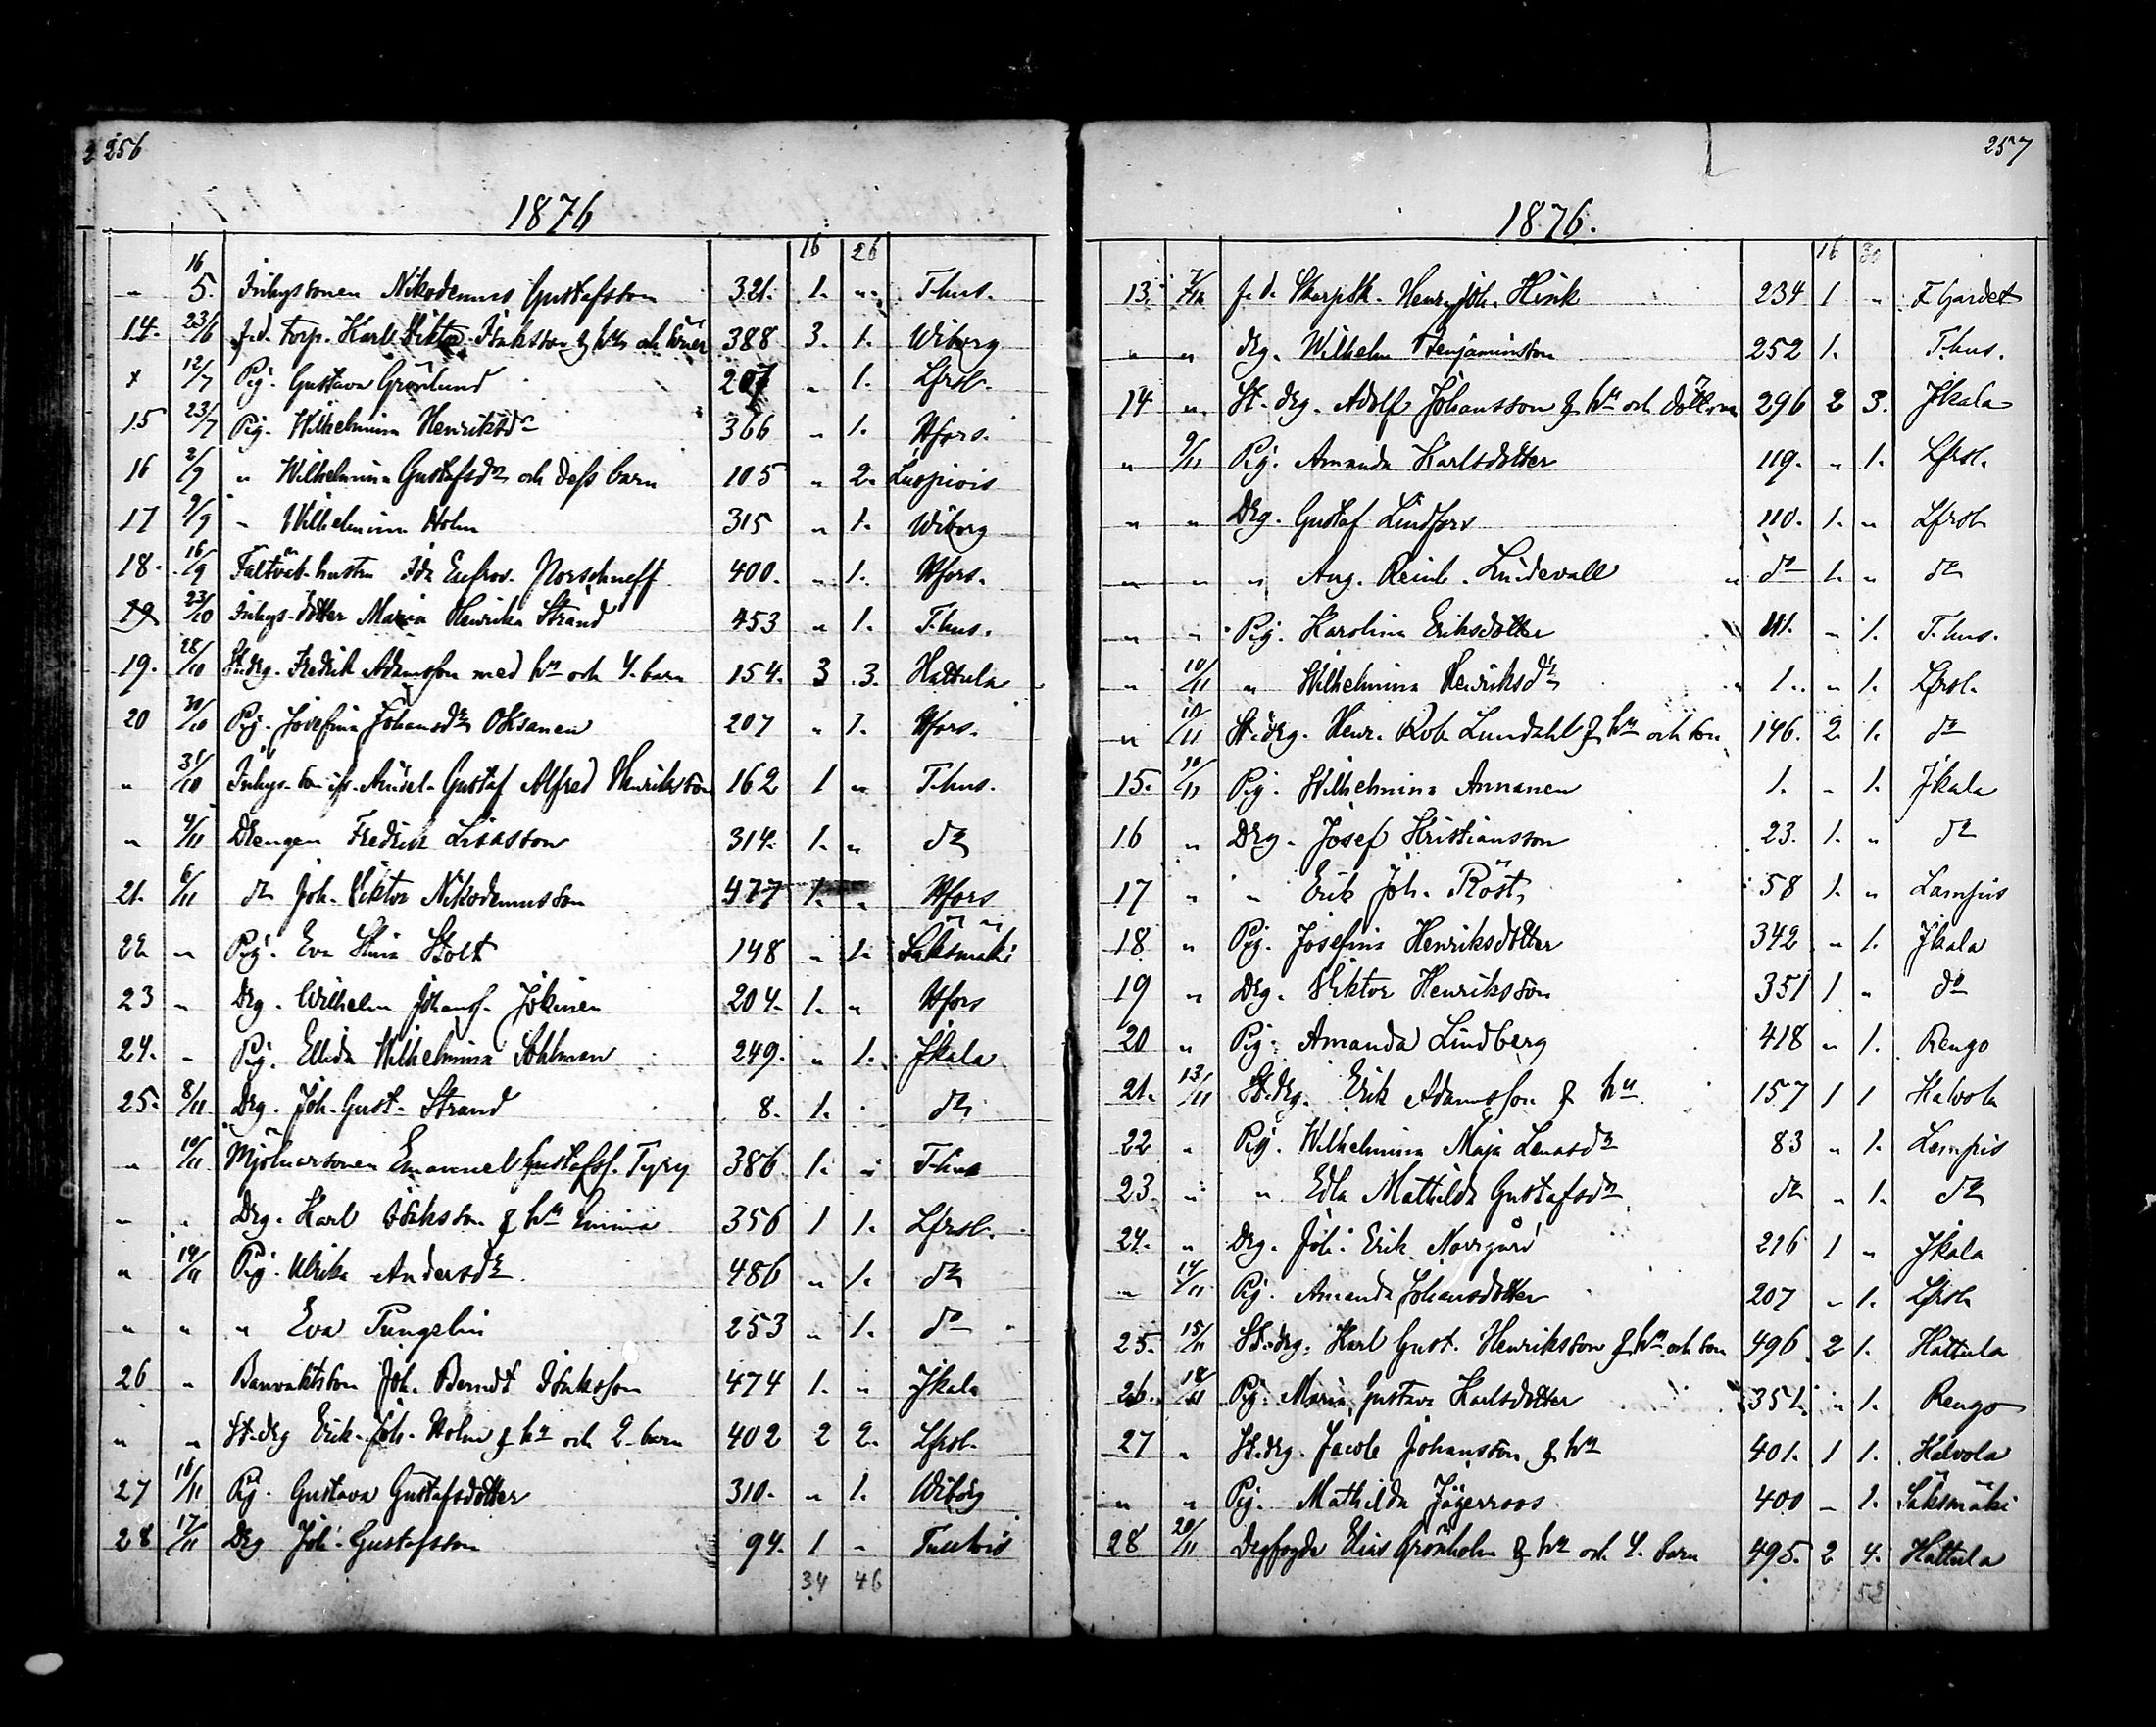 256
1876
16 26
" 16/5. Inhyssonen Nikodemus Gustafsson 321. 1. " T.hus.
14. 23/6 f.d. Torp. Karl Viktor Isaksson & hu och söner 388 3. 1. Wiborg
x 12/7 Pig. Gustava Grönlund 207 " 1. Lfrsl.
15 23/7 Pig. Wilhelmina Henriksdr 366 " 1. Hfors.
16 2/9 " Wilhelmina Gustafsdr och dess barn 105 " 2. Luopiois
17 9/9 " Wilhelmina Holm 315 " 1. Wiborg
18. 16/9 Fältväb. hustru Ida Eufros. 400. " 1. Hfors.
19 23/10 Inhys-dotter Maria Henrika Strand 453 " 1. T.hus.
19. 28/10 St.drg. Fredrik Adamsson med hu och 4. barn 154. 3 3. Hattula
20 30/10 Pig. Josefina Johansdr Oksanen 207 " 1. Hfors.
" 31/10 Inhys. son Gustaf Alfred Henriksson 162 1 " T.hus.
" 4/11 Drengen Fredrik Lisasson 314. 1. " do
21. 6/11 do Joh. Viktor Nikodemusson 477 1. " Hfors
22 " Pig. Eva Stina Stolt 148 " 1. Sääksmäki
23 " Drg. Wilhelm Johanss. Jokinen 204. 1. " Hfors
24. " Pig. Ellida Wilhelmina Sohlman 249. " 1. Jkala
25. 8/11 Drg. Joh. Gust. Strand 8. 1. " do
" 10/11 Mjölnarsonen Emanuel Gustafss. Tyry 386 1. " T.hus
" " Drg. Karl Isaksson & hu Emma 356 1 1. Lfrsl.
" 14/11 Pig. Ulrika Andersdr 486 " 1. do
" " " Eva Tungelin 253 " 1. do
26 " Banvaktsson Joh. Berndt Isaksson 474 1. " Jkala
" " St.drg Erik Joh. Holm & hu och 2 barn 402 2 2. Lfrsl.
27 16/11 Pig. Gustava Gustafsdotter 310. " 1. Wiborg
28 17/11 Drg Joh. Gustafsson 94. 1 " Tuulois
34 46
257
1876.
16 30
13. f.d. Skarpsk. Henr. Joh. Hisik 234 1 "
" " drg. Wilhelm Benjaminsson 252 1. T.hus.
14 " St.drg. Adolf Johansson & hu och döttrar 296 2 3. Jkala
" 9/11 Pig. Amanda Karlsdotter 119. " 1. Lfrsl.
" " Drg. Gustaf Lindfors 110. 1. " Lfrsl.
" " " Aug. Reinh. Lindevall do 1. " do
" " Pig. Karolina Eriksdotter " 1. T.hus.
" 10/11 " Wilhelmina Henriksdr 1. " 1. Lfrsl.
" 10/11 St.drg. Henr. Rob. Lundahl & hu och son 146. 2 1. do
15. 10/11 Pig. Wilhelmina Annanen 1. " 1. Jkala
16 " Drg. Josef Kristiansson 23. 1. " do
17 " " Erik Joh. Röst 58 1. " Lampis
18 " Pig. Josefina Henriksdotter 342 " 1. Jkala
19 " Drg. Viktor Henriksson 351 1 " do
20 " Pig. Amanda Lindberg 418 " 1. Rengo
21. 13/11 St.drg. Erik Adamsson & hu 157 1 1 Kalvola
22 " Pig. Wilhelmina Maja Lenasdr 83 " 1. Lampis
23. " " Edla Mathilda Gustafsdr do " 1. do
24. " Drg. Joh. Erik Norrgård 216 1 " Jkala
" 14/11 Pig. Amanda Johansdotter 207 " 1. Lfrsl.
25. 15/11 St.drg. Karl Gust. Henriksson & hu och son 496 2 1. Hattula
26. 18/11 Pig. Maria Gustava Karlsdotter 351. " 1. Rengo
27 " St.drg. Jacob Johansson & hu 401. 1 1. Kalvola
" " Pig. Mathilda Jägerroos 400 " 1. Sääksmäki
28 20/11 Drgfogde Elias Grönholm & hu och 4. barn 495. 2 4. Hattula
34 52